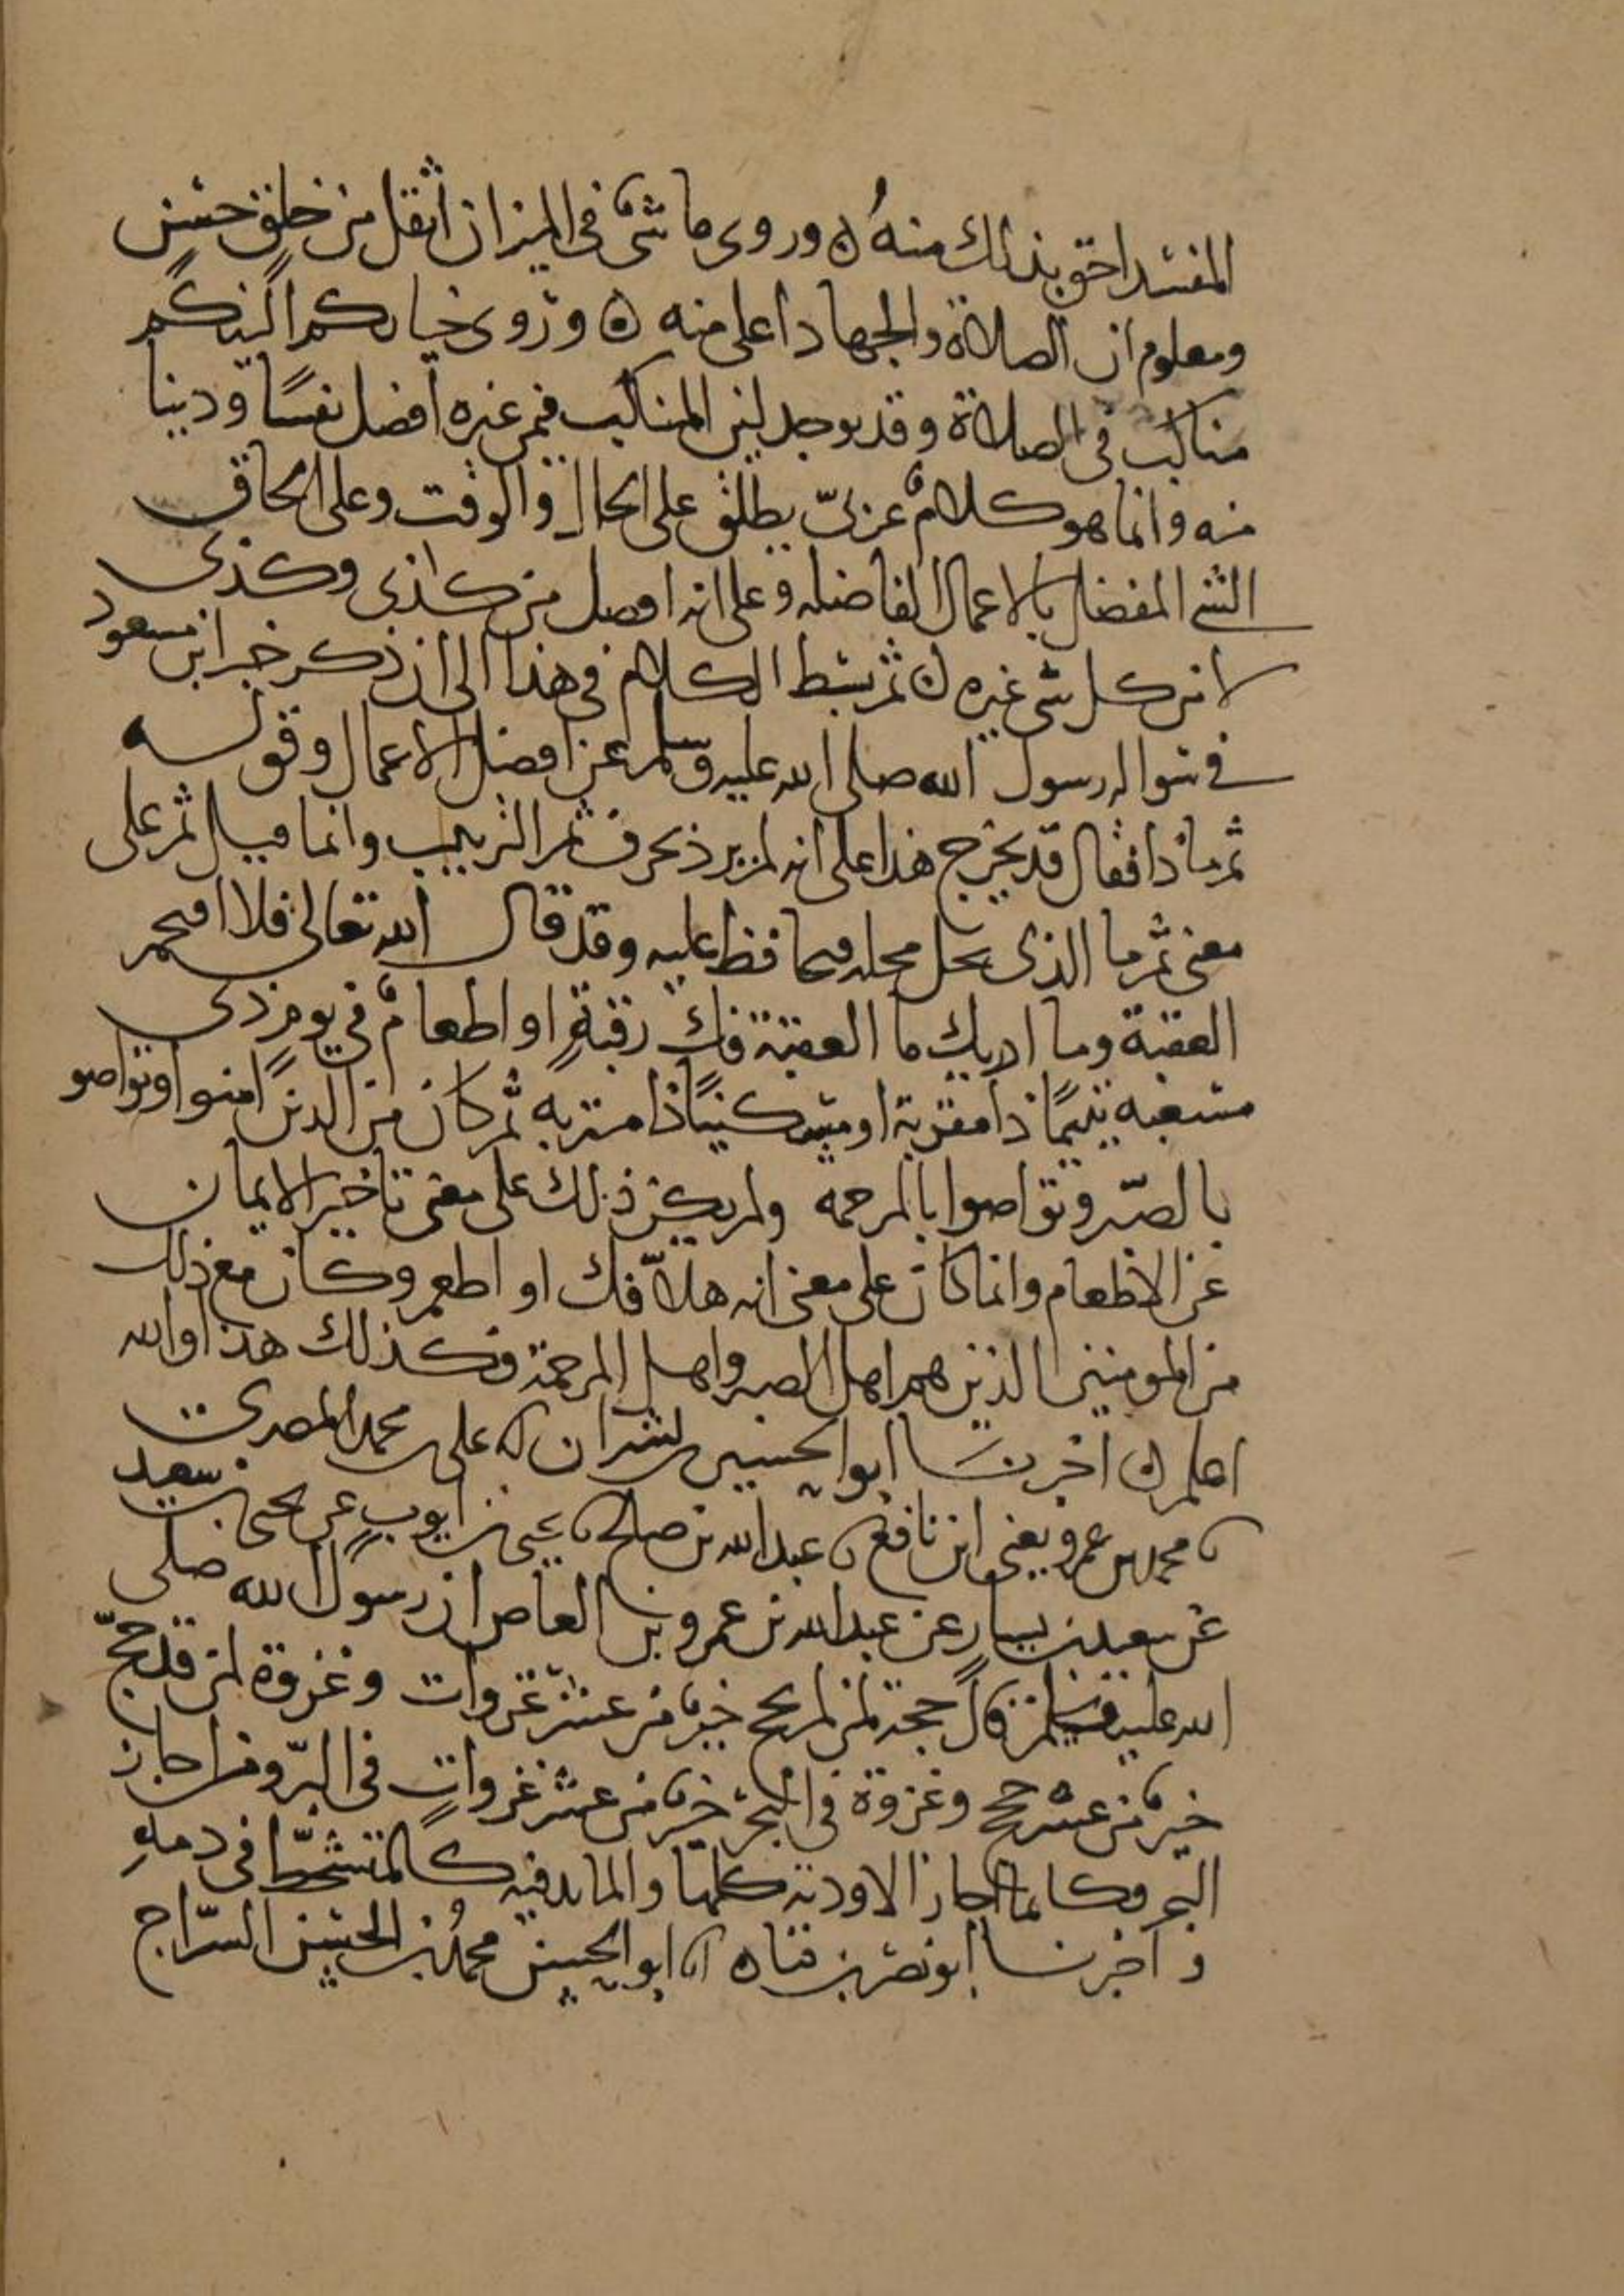 المفسد احق بذلك منه ه وروى ما شىء فى الميزان اثقل من خلق حسن
ومعلوم ان الصلاة والجهاد اعلى منه ه وروى خياركم الينكم
مناكب فى الصلاة وقد يوجد لين المناكب فيمن غيره افضل نفسًا ودينا
منه وانما هو كلامٌ عربىّ يطلق على الحال والوقت وعلى الحاق
الشى المفضل بالاعمال الفاضله وعلى انه افضل من كذى وكذى
لا من كل شى غيره ه ثم بسط الكلام فى هذا الى ان ذكر خبر ابن مسعود
فى سواله رسول الله صلى الله عليه وسلم عن افضل الاعمال وقوله
ثم ماذا فقال قد يخرج هذا على انه لم يرد بحرف ثم الترتيب وانما قيل ثم على
معنى ثم ما الذى يحل محله فيحافظ عليه وقد قال الله تعالى فلا اقتحم
العقبة وما ادريك ما العقبة فك رقبةٍ او اطعامٌ فى يوم ذى
مسغبه يتيمًا ذا مقربة او مسكينًا ذا متربه ثم كان من الذين امنوا وتواصو
بالصبر وتواصوا بالمرحمه ولم يكن ذلك على معنى تاخير الايمان
عن الاطعام وانما كان على معنى انه هلاّ فك او اطعم وكان مع ذلك
من المومنين الذين هم اهل الصبر واهل المرحمة فكذلك هذا والله
اعلم ه اخبرنا ابو الحسين بن بشران نا على بن محمد المصرى
نا محمد بن عمرو يعنى ابن نافع نا عبد الله بن صلح نا يحيى بن ايوب عن يحيى بن سعيد
عن سعيد بن يسار عن عبد الله بن عمرو بن العاص ان رسول الله صلى
الله عليه وسلم قال حجة لمن لم يحج خيرٌ من عشر غزوات وغزوة لمن قد حجّ
خيرٌ من عشر حجج وغزوة فى البحر خيرٌ من عشر غزواتٍ فى البرّ ومن اجاز
البحر فكانما اجاز الاودية كلها والمايد فيه كالمتشحّط فى دمهِ
و اخبرنا ابو نصر بن قتاده انا ابو الحسن محمدُ بن الحسن السرّاج